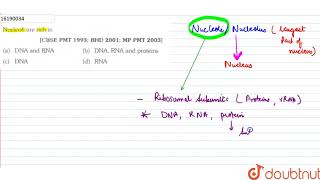 16190034
Nucleoli are rich in
[CBSE PMT 1993; BHU 2001; MP PMT 2003]
(a) DNA and RNA (b) DNA, RNA and proteins
(c) DNA (d) RNA
Nucleoli Nucleolus (Largest
Part of
nucleus)
Nucleus
- Ribosomal subunits (Proteins, rRNA)
* DNA, RNA, protein
doubtnut